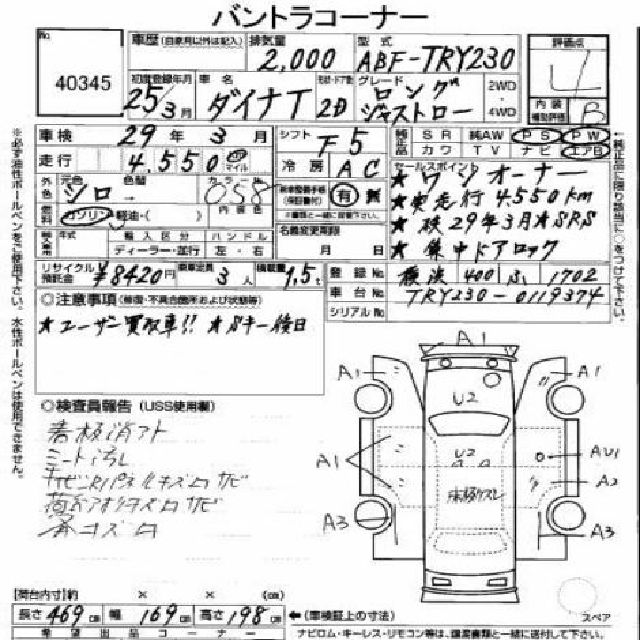 バントラコーナー
No.
40345
車歴 (自家用以外は記入) 排気量 2,000 型式 ABF-TRY230
評価点
4
内装
補助評価
B
初度登録年月 25/3月 車名 ダイナT 2D グレード ロング ジャストロー 2WD 4WD
車検 29年3月 シフト F5
純正品 SR 純AW PS PW
カワ TV ナビ エアB
走行 4.550 マイル 冷房 AC
セールスポイント
★ワンオーナー
★実走行 4.550km
★検29年3月★SRS
★集中ドアロック
外色 元色 シロ 色替 カラーNo. 058
燃料 ガソリン・軽油・( ) 内装色
有 無
名義変更期限 月 日
年式 輸入区分 ハンドル
ディーラー・並行 左・右
リサイクル預託金 ¥8420円 乗車定員 3人 積載量 1.5t
登録No. 横浜 400 1702
車台No. TRY230-0119374
シリアルNo.
◎注意事項 (修復・不具合箇所および状態等)
★ユーザー買取車!! ★スペアキー後日
◎検査員報告 (USS使用欄)
A1
A1
A1
U2
U2
A1
AU1
A2
A3
A3
スペア
【荷台内寸】約 × × cm
長さ 469cm 幅 169cm 高さ 198cm ←(車検証上の寸法)
希望出品コーナー
ナビロム・キーレス・リモコン等は、譲渡書類と一緒に送付して下さい。
※必ず油性ボールペンをご使用下さい。水性ボールペンは使用できません。
※純正品に限り該当に○をつけて下さい。